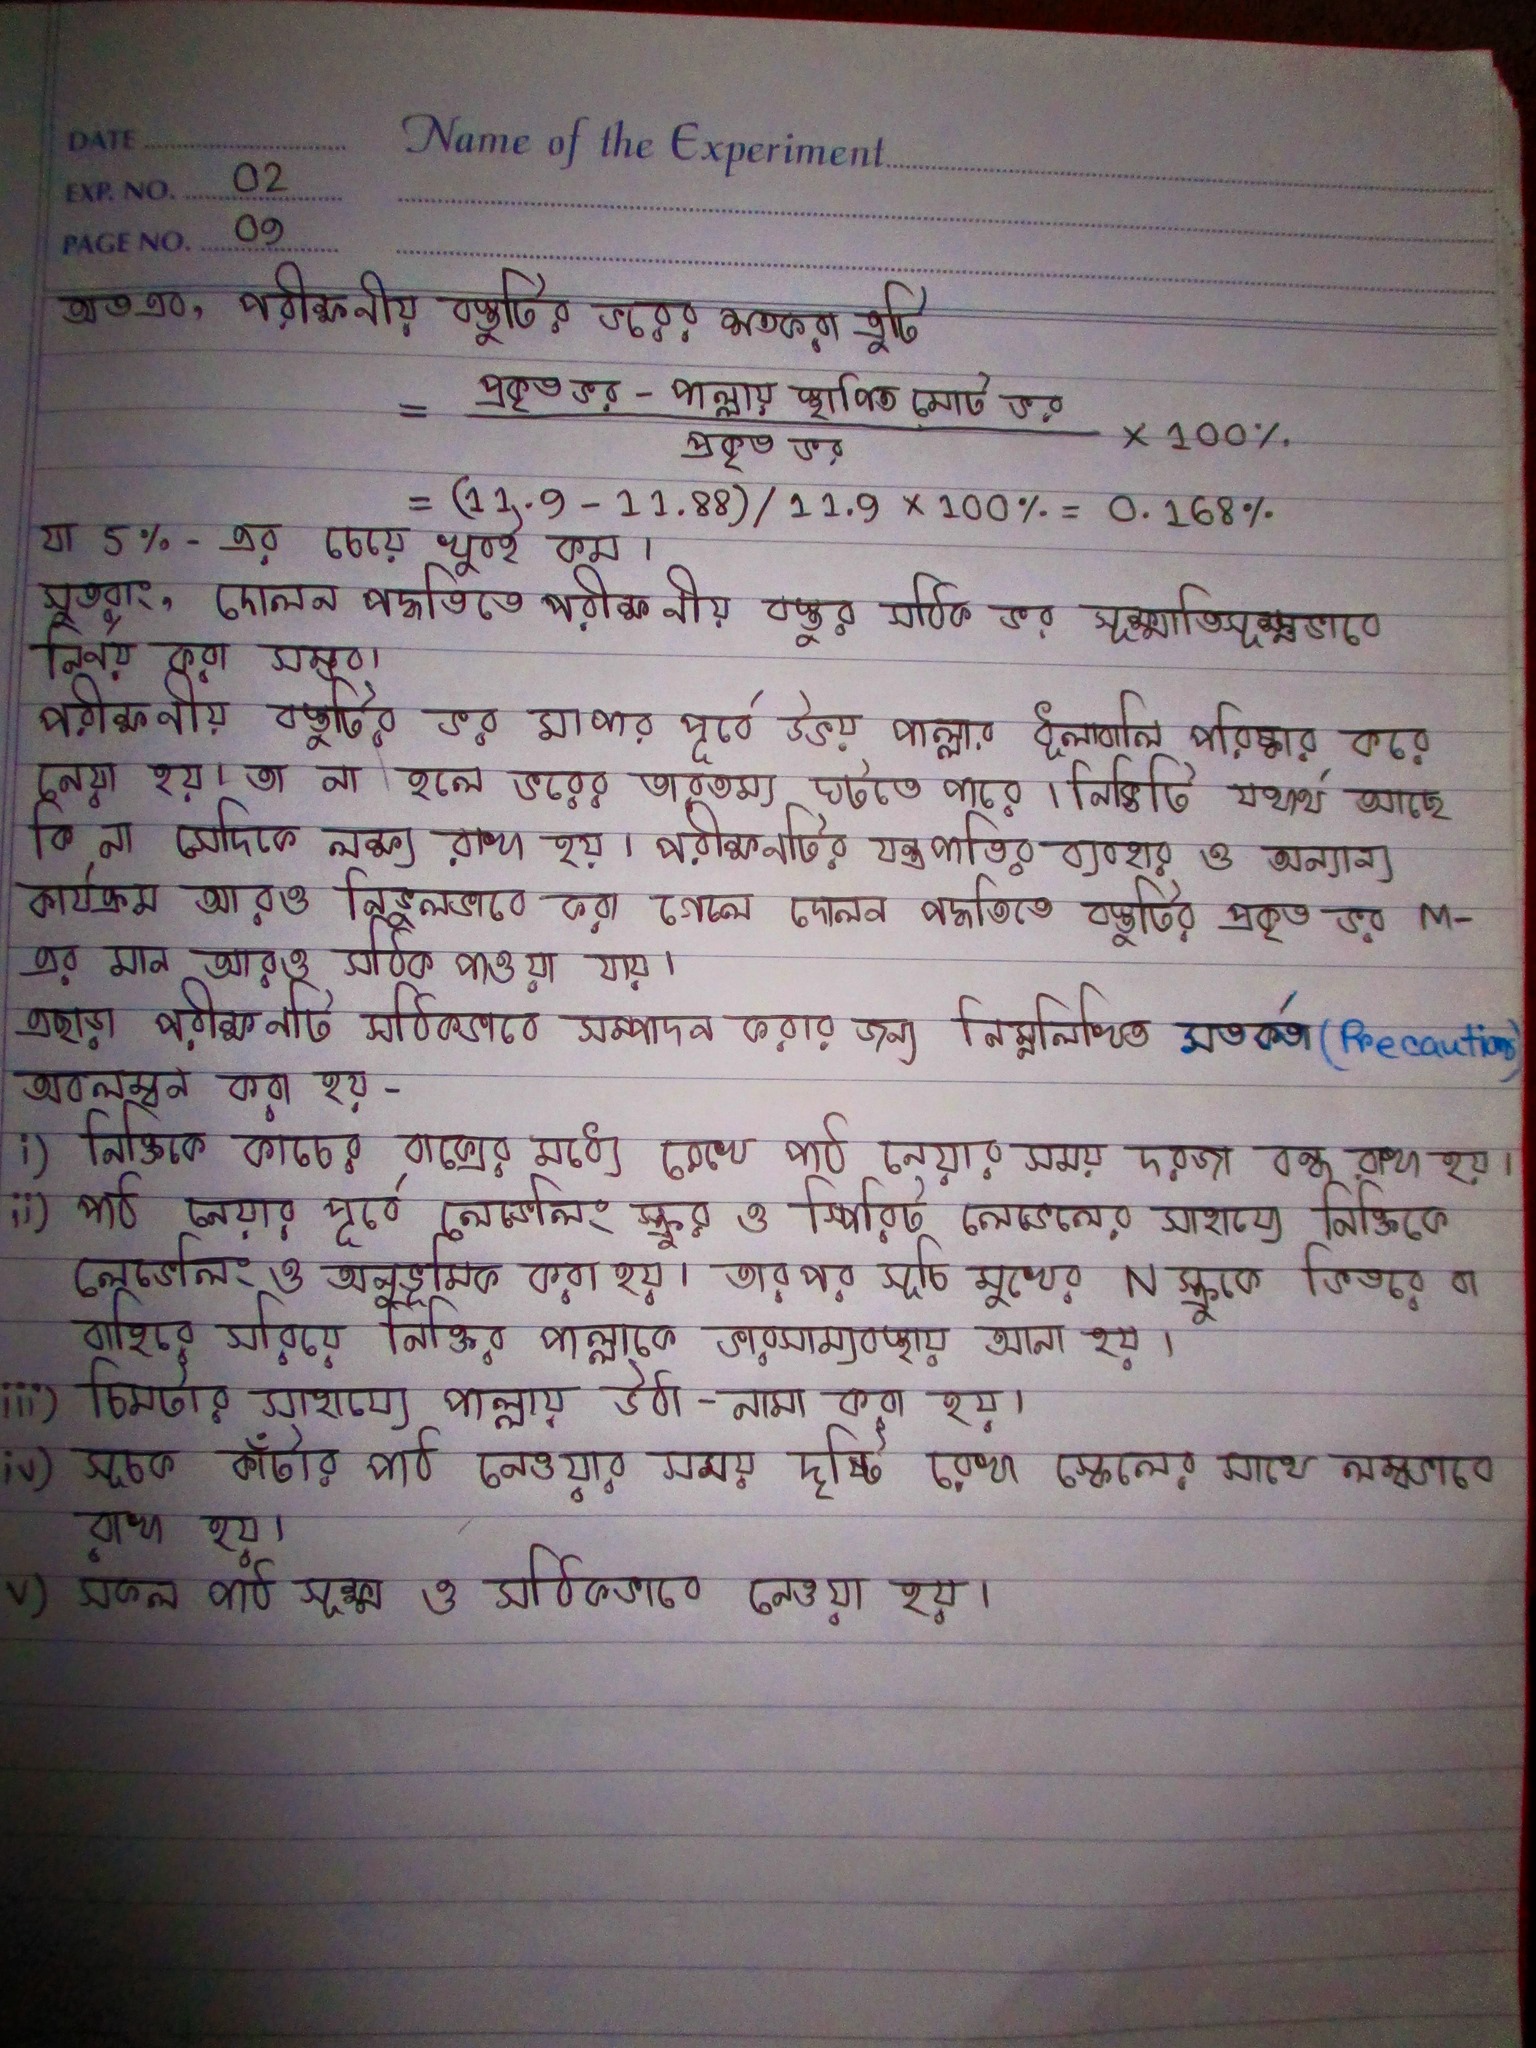 DATE
Name of the Experiment
EXP. NO. 02
PAGE NO. 09
অতএব, পরীক্ষনীয় বস্তুটির ভরের শতকরা ত্রুটি
= প্রকৃত ভর - পাল্লায় স্থাপিত মোট ভর / প্রকৃত ভর × 100%
= (11.9 - 11.88) / 11.9 × 100% = 0.168%
যা 5% - এর চেয়ে খুবই কম।
সুতরাং, দোলন পদ্ধতিতে পরীক্ষনীয় বস্তুর সঠিক ভর সূক্ষ্মাতিসূক্ষ্মভাবে
নির্ণয় করা সম্ভব।
পরীক্ষনীয় বস্তুটির ভর মাপার পূর্বে উভয় পাল্লার ধূলাবালি পরিষ্কার করে
নেয়া হয়। তা না হলে ভরের তারতম্য ঘটতে পারে। নিক্তিটি যথার্থ আছে
কি না সেদিকে লক্ষ্য রাখা হয়। পরীক্ষনটির যন্ত্রপাতির ব্যবহার ও অন্যান্য
কার্যক্রম আরও নির্ভুলভাবে করা গেলে দোলন পদ্ধতিতে বস্তুটির প্রকৃত ভর M-
এর মান আরও সঠিক পাওয়া যায়।
এছাড়া পরীক্ষনটি সঠিকভাবে সম্পাদন করার জন্য নিম্নলিখিত সতর্কতা (Precautions)
অবলম্বন করা হয় -
i) নিক্তিকে কাচের বাক্সের মধ্যে রেখে পাঠ নেয়ার সময় দরজা বন্ধ রাখা হয়।
ii) পাঠ নেয়ার পূর্বে লেভেলিং স্ক্রুর ও স্পিরিট লেভেলের সাহায্যে নিক্তিকে
লেভেলিং ও অনুভূমিক করা হয়। তারপর সূচি মুখের N স্ক্রুকে ভিতরে বা
বাহিরে সরিয়ে নিক্তির পাল্লাকে ভারসাম্যবস্থায় আনা হয়।
iii) চিমটার সাহায্যে পাল্লায় উঠা - নামা করা হয়।
iv) সূচক কাঁটার পাঠ নেওয়ার সময় দৃষ্টি রেখা স্কেলের সাথে লম্বভাবে
রাখা হয়।
v) সকল পাঠ সূক্ষ্ম ও সঠিকভাবে নেওয়া হয়।